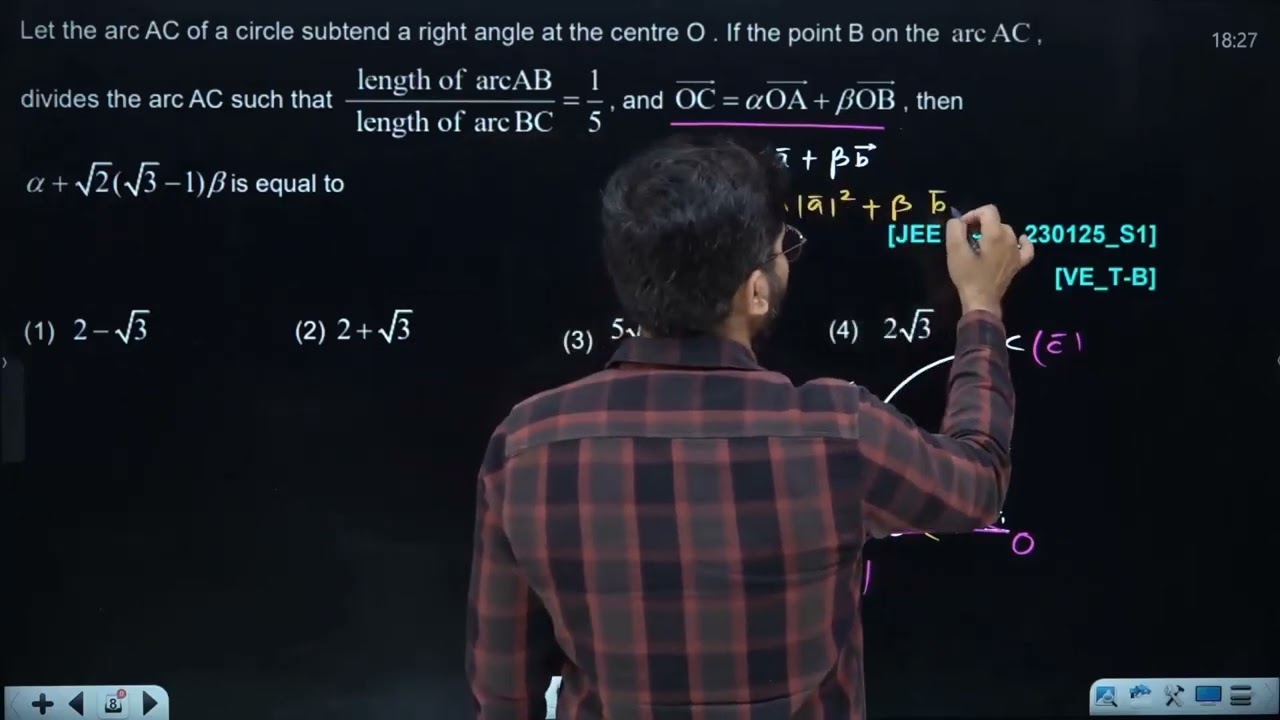 Let the arc AC of a circle subtend a right angle at the centre O . If the point B on the arc AC ,
18:27
divides the arc AC such that \frac{length of arcAB}{length of arc BC} = \frac{1}{5} , and \overrightarrow{OC} = α\overrightarrow{OA} + β\overrightarrow{OB} , then
α + √2(√3 − 1)β is equal to
ā + β\vec{b}
|ā|² + β b̄
[JEE 230125_S1]
[VE_T-B]
(1) 2 − √3
(2) 2 + √3
(3) 5√
(4) 2√3
C (c̄)
O
8